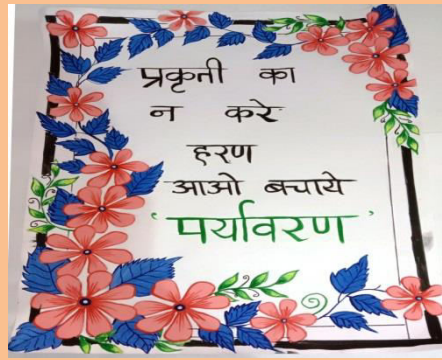 प्रकृती का
न करे
हरण
आओ बचाये
'पर्यावरण'